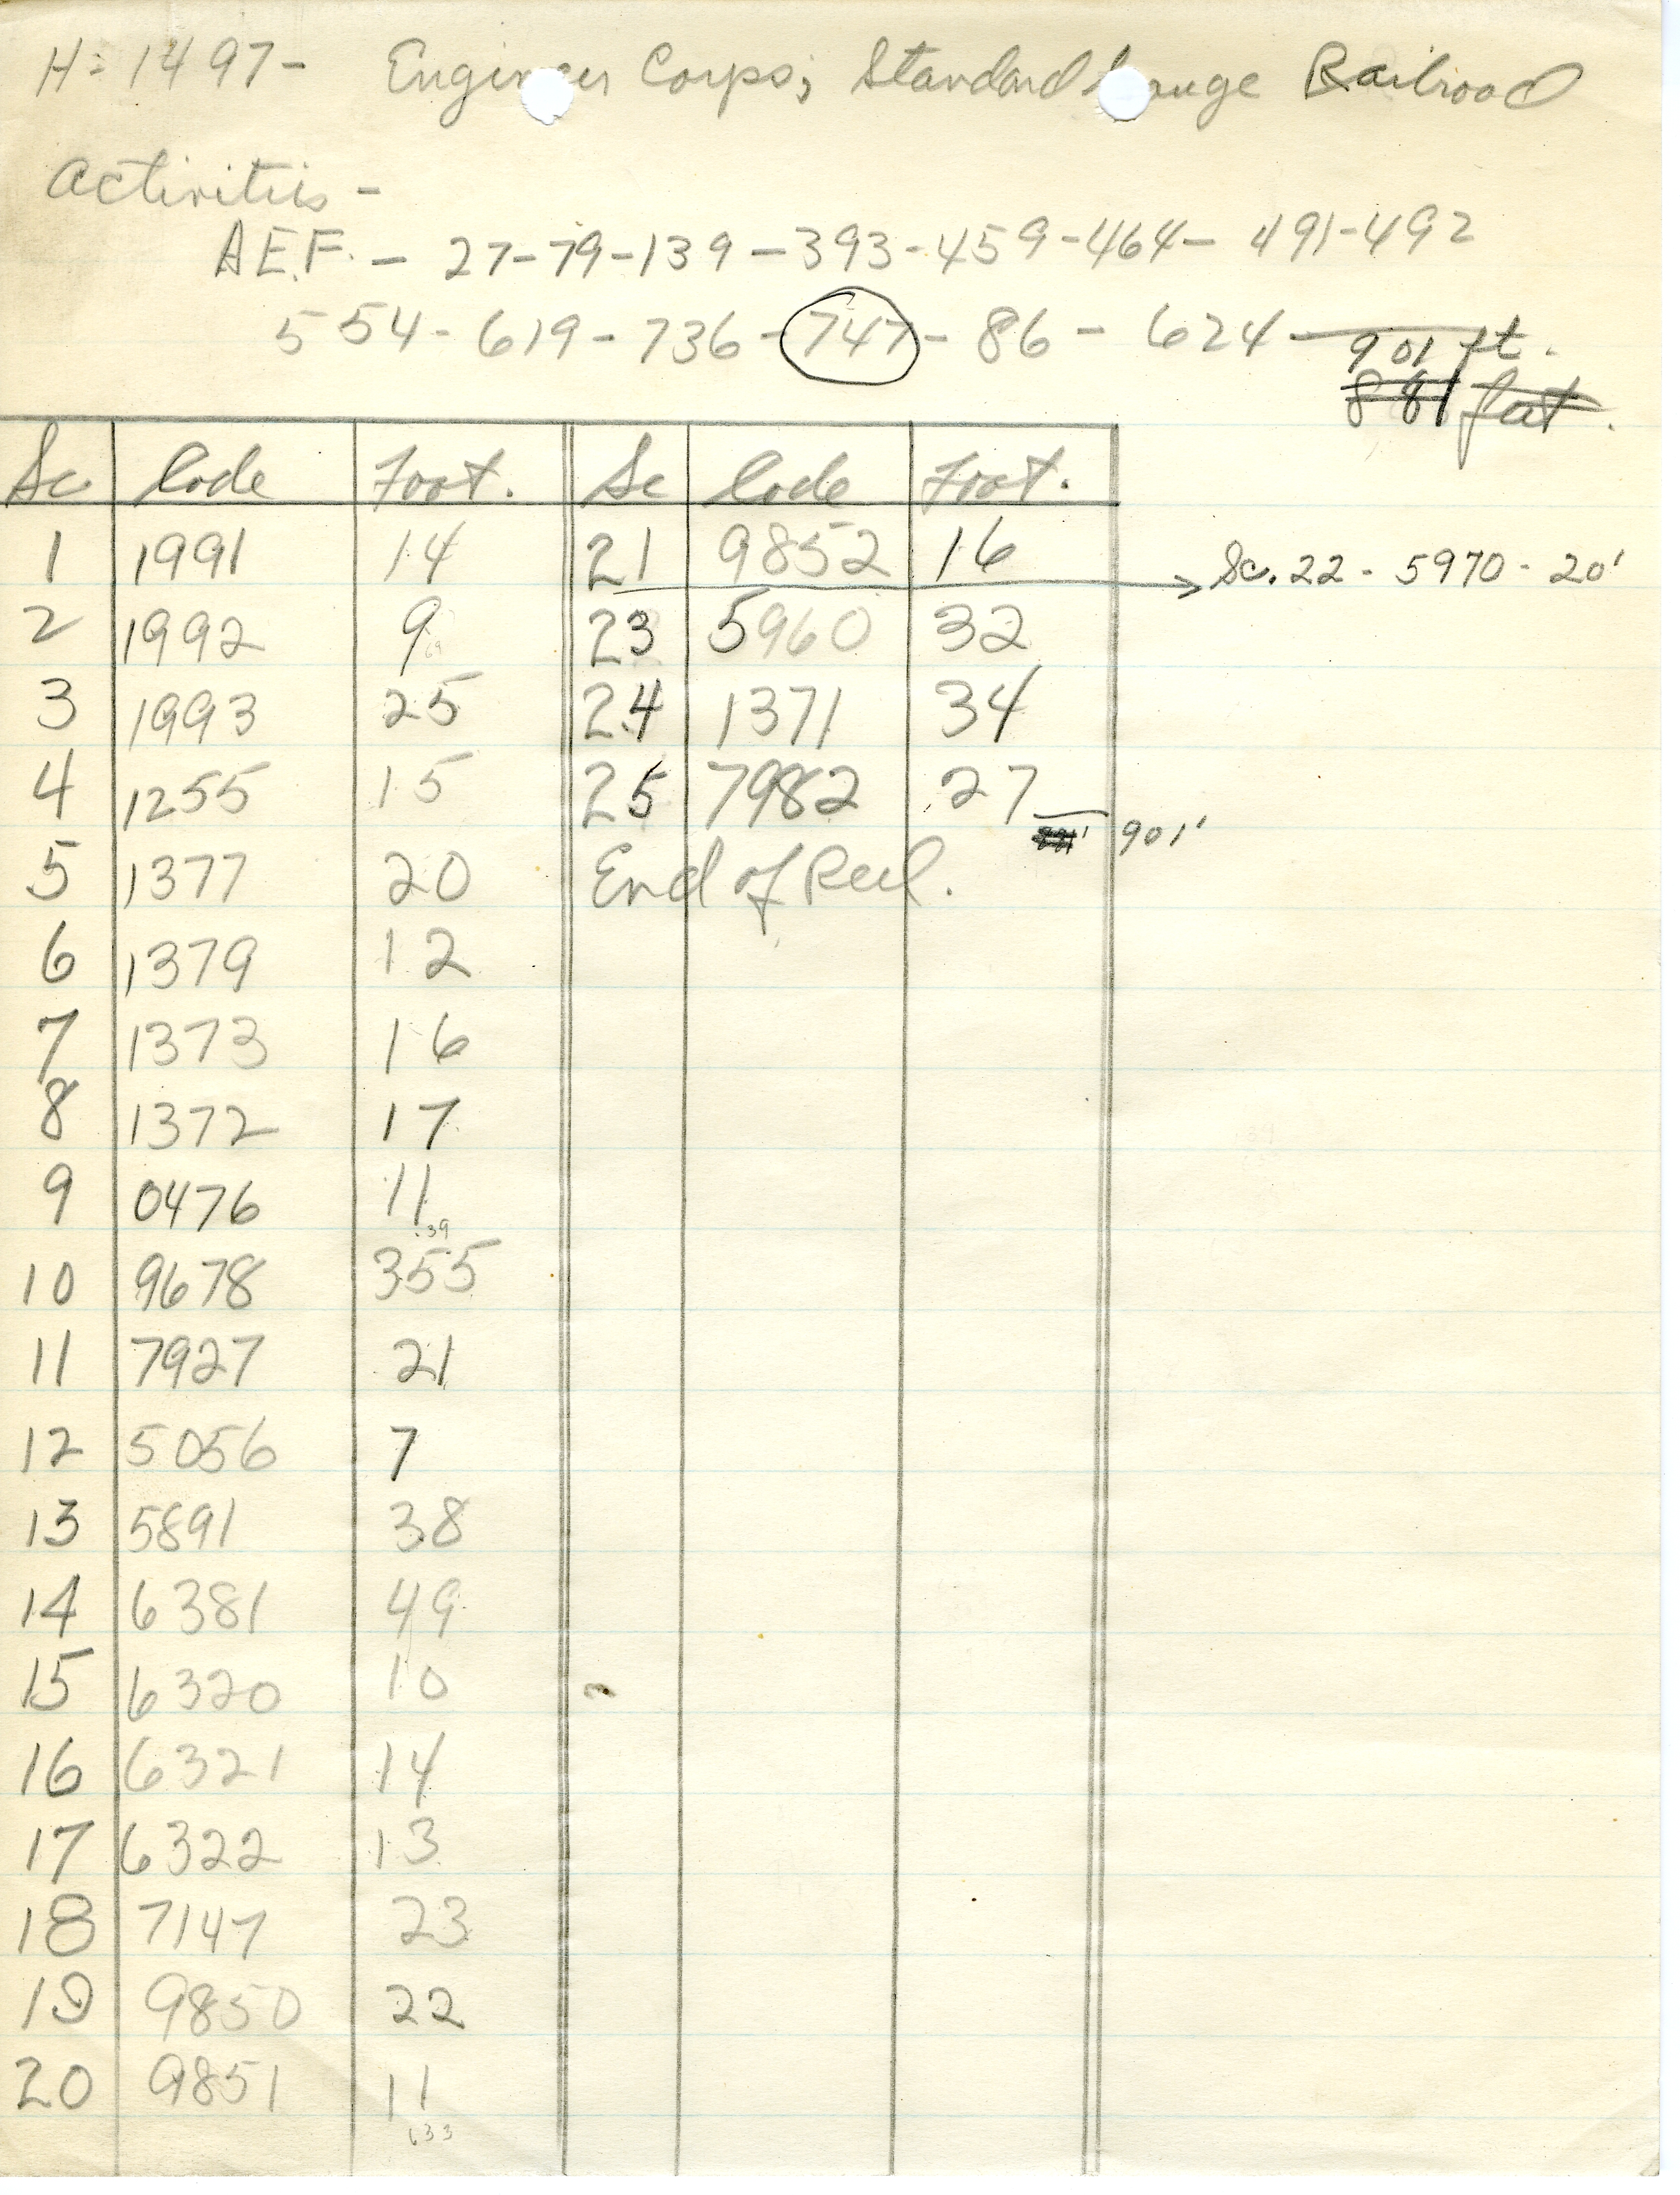 H-1497- Engineer Corps; Standard Gauge Railroad
Activities -
A.E.F. - 27-79-139-393-459-464-491-492
554-619-736-747-86-624- 901 ft.
881 feet.
Sc Code Foot. Sc Code Foot.
1 1991 14 21 9852 16 Sc. 22 - 5970 - 20'
2 1992 9 23 5960 32
3 1993 25 24 1371 34
4 1255 15 25 7982 27
901'
5 1377 20 End of Reel.
6 1379 12
7 1373 16
8 1372 17
9 0476 11
139
10 9678 355
11 7927 21
12 5056 7
13 5891 38
14 6381 49
15 6320 10
16 6321 14
17 6322 13
18 7147 23
19 9850 22
20 9851 11
633